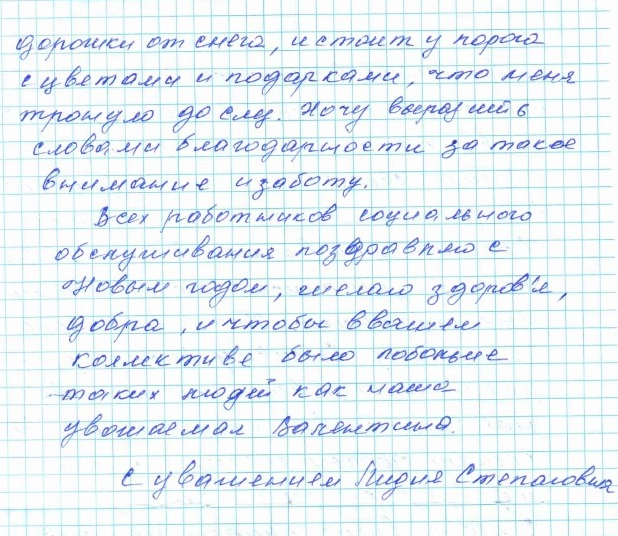 дорожки от снега, и стоит у порога
с цветами и подарками, что меня
тронуло до слёз. Хочу выразить
словами благодарности за такое
внимание и заботу.
Всех работников социального
обслуживания поздравляю с
Новым годом, желаю здоров'я,
добра, и чтобы в вашем
коллективе было побольше
таких людей как наша
уважаемая Валентина.
С уважением Лидия Степановна